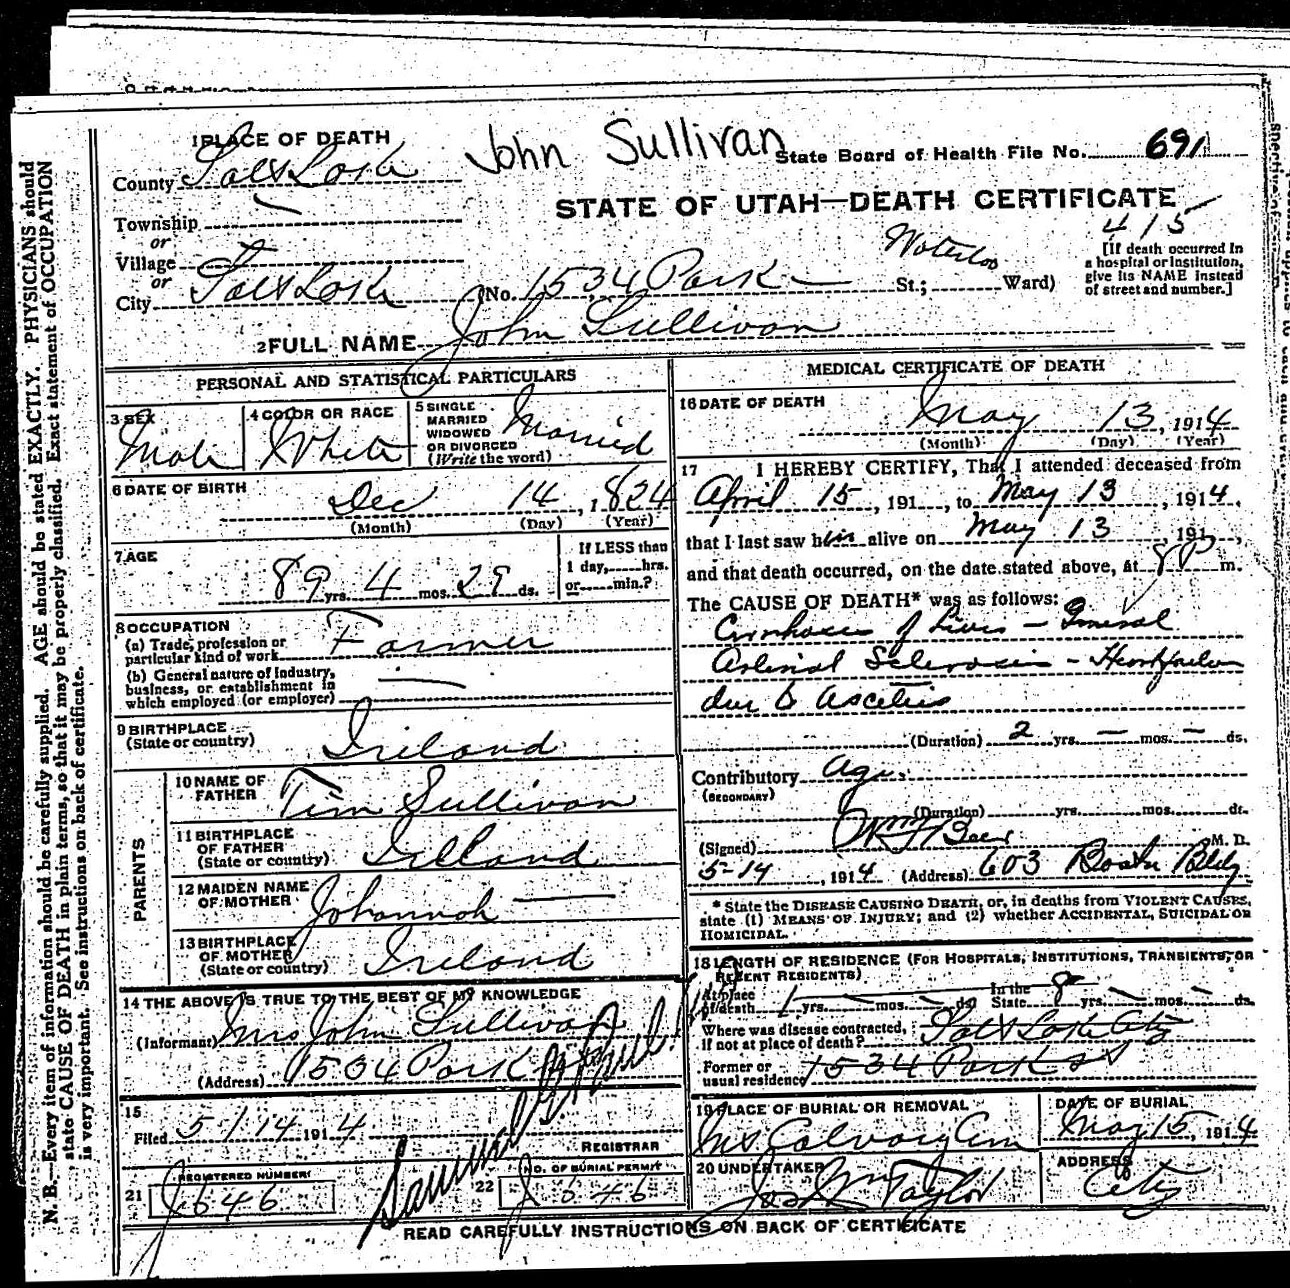 John Sullivan
State Board of Health File No. 691
1 PLACE OF DEATH
County Salt Lake
STATE OF UTAH—DEATH CERTIFICATE
415
Township
or
Village
or
City Salt Lake (No. 1534 Park St.; Waterloo Ward)
[If death occurred in
a hospital or institution,
give its NAME instead
of street and number.]
2 FULL NAME John Sullivan
PERSONAL AND STATISTICAL PARTICULARS
3 SEX Male
4 COLOR OR RACE White
5 SINGLE
MARRIED
WIDOWED
OR DIVORCED
(Write the word) Married
6 DATE OF BIRTH Dec 14, 1824
(Month) (Day) (Year)
7 AGE 89 yrs. 4 mos. 29 ds.
If LESS than
1 day, hrs.
or min.?
8 OCCUPATION
(a) Trade, profession or
particular kind of work Farmer
(b) General nature of industry,
business, or establishment in
which employed (or employer)
9 BIRTHPLACE
(State or country) Ireland
PARENTS
10 NAME OF
FATHER Tim Sullivan
11 BIRTHPLACE
OF FATHER
(State or country) Ireland
12 MAIDEN NAME
OF MOTHER Johannah
13 BIRTHPLACE
OF MOTHER
(State or country) Ireland
14 THE ABOVE IS TRUE TO THE BEST OF MY KNOWLEDGE
(Informant) Mrs John Sullivan
(Address) 1534 Park
15
Filed 5/14 1914
REGISTRAR
REGISTERED NUMBER
21 J646
NO. OF BURIAL PERMIT
22 J646
MEDICAL CERTIFICATE OF DEATH
16 DATE OF DEATH
May 13, 1914
(Month) (Day) (Year)
17 I HEREBY CERTIFY, That I attended deceased from
April 15, 191 , to May 13, 1914.
that I last saw him alive on May 13, 191 ,
and that death occurred, on the date stated above, at 8 P m.
The CAUSE OF DEATH* was as follows:
Cirrhosis of Liver - General
Arterial Sclerosis - Heart failure
due to Ascetis
(Duration) 2 yrs. — mos. — ds.
Contributory Age.
(SECONDARY)
(Duration) yrs. mos. ds.
(Signed) M. D.
5-14, 1914 (Address) 603 Boston Bldg
* State the DISEASE CAUSING DEATH, or, in deaths from VIOLENT CAUSES,
state (1) MEANS OF INJURY; and (2) whether ACCIDENTAL, SUICIDAL OR
HOMICIDAL.
18 LENGTH OF RESIDENCE (FOR HOSPITALS, INSTITUTIONS, TRANSIENTS, OR
RECENT RESIDENTS)
At place
of death 1 yrs. — mos. — ds. In the
State 8 yrs. — mos. — ds.
Where was disease contracted,
if not at place of death? Salt Lake City
Former or
usual residence 1534 Park St
19 PLACE OF BURIAL OR REMOVAL
Mt Calvary Cem
DATE OF BURIAL
May 15, 1914
20 UNDERTAKER
Jos Wm Taylor
ADDRESS
City
READ CAREFULLY INSTRUCTIONS ON BACK OF CERTIFICATE
N. B.—Every item of information should be carefully supplied. AGE should be stated EXACTLY. PHYSICIANS should
state CAUSE OF DEATH in plain terms, so that it may be properly classified. Exact statement of OCCUPATION
is very important. See instructions on back of certificate.